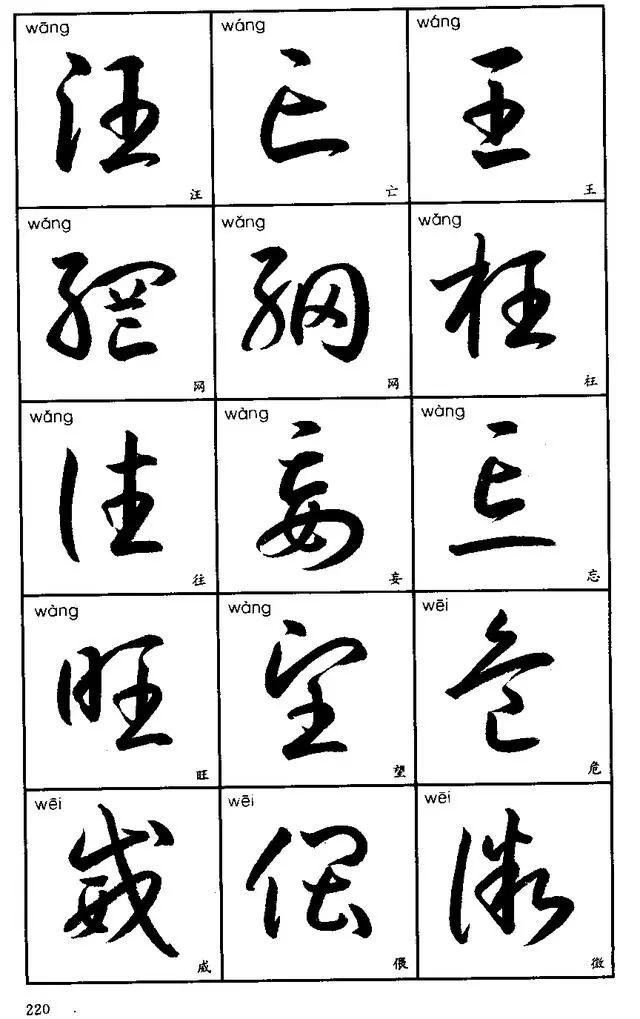 wāng wáng wáng
汪 亡 王
汪 亡 王
wǎng wǎng wǎng
網 網 枉
网 网 枉
wǎng wàng wàng
往 妄 忘
往 妄 忘
wàng wàng wēi
旺 望 危
旺 望 危
wēi wēi wēi
威 偎 微
威 偎 微
220